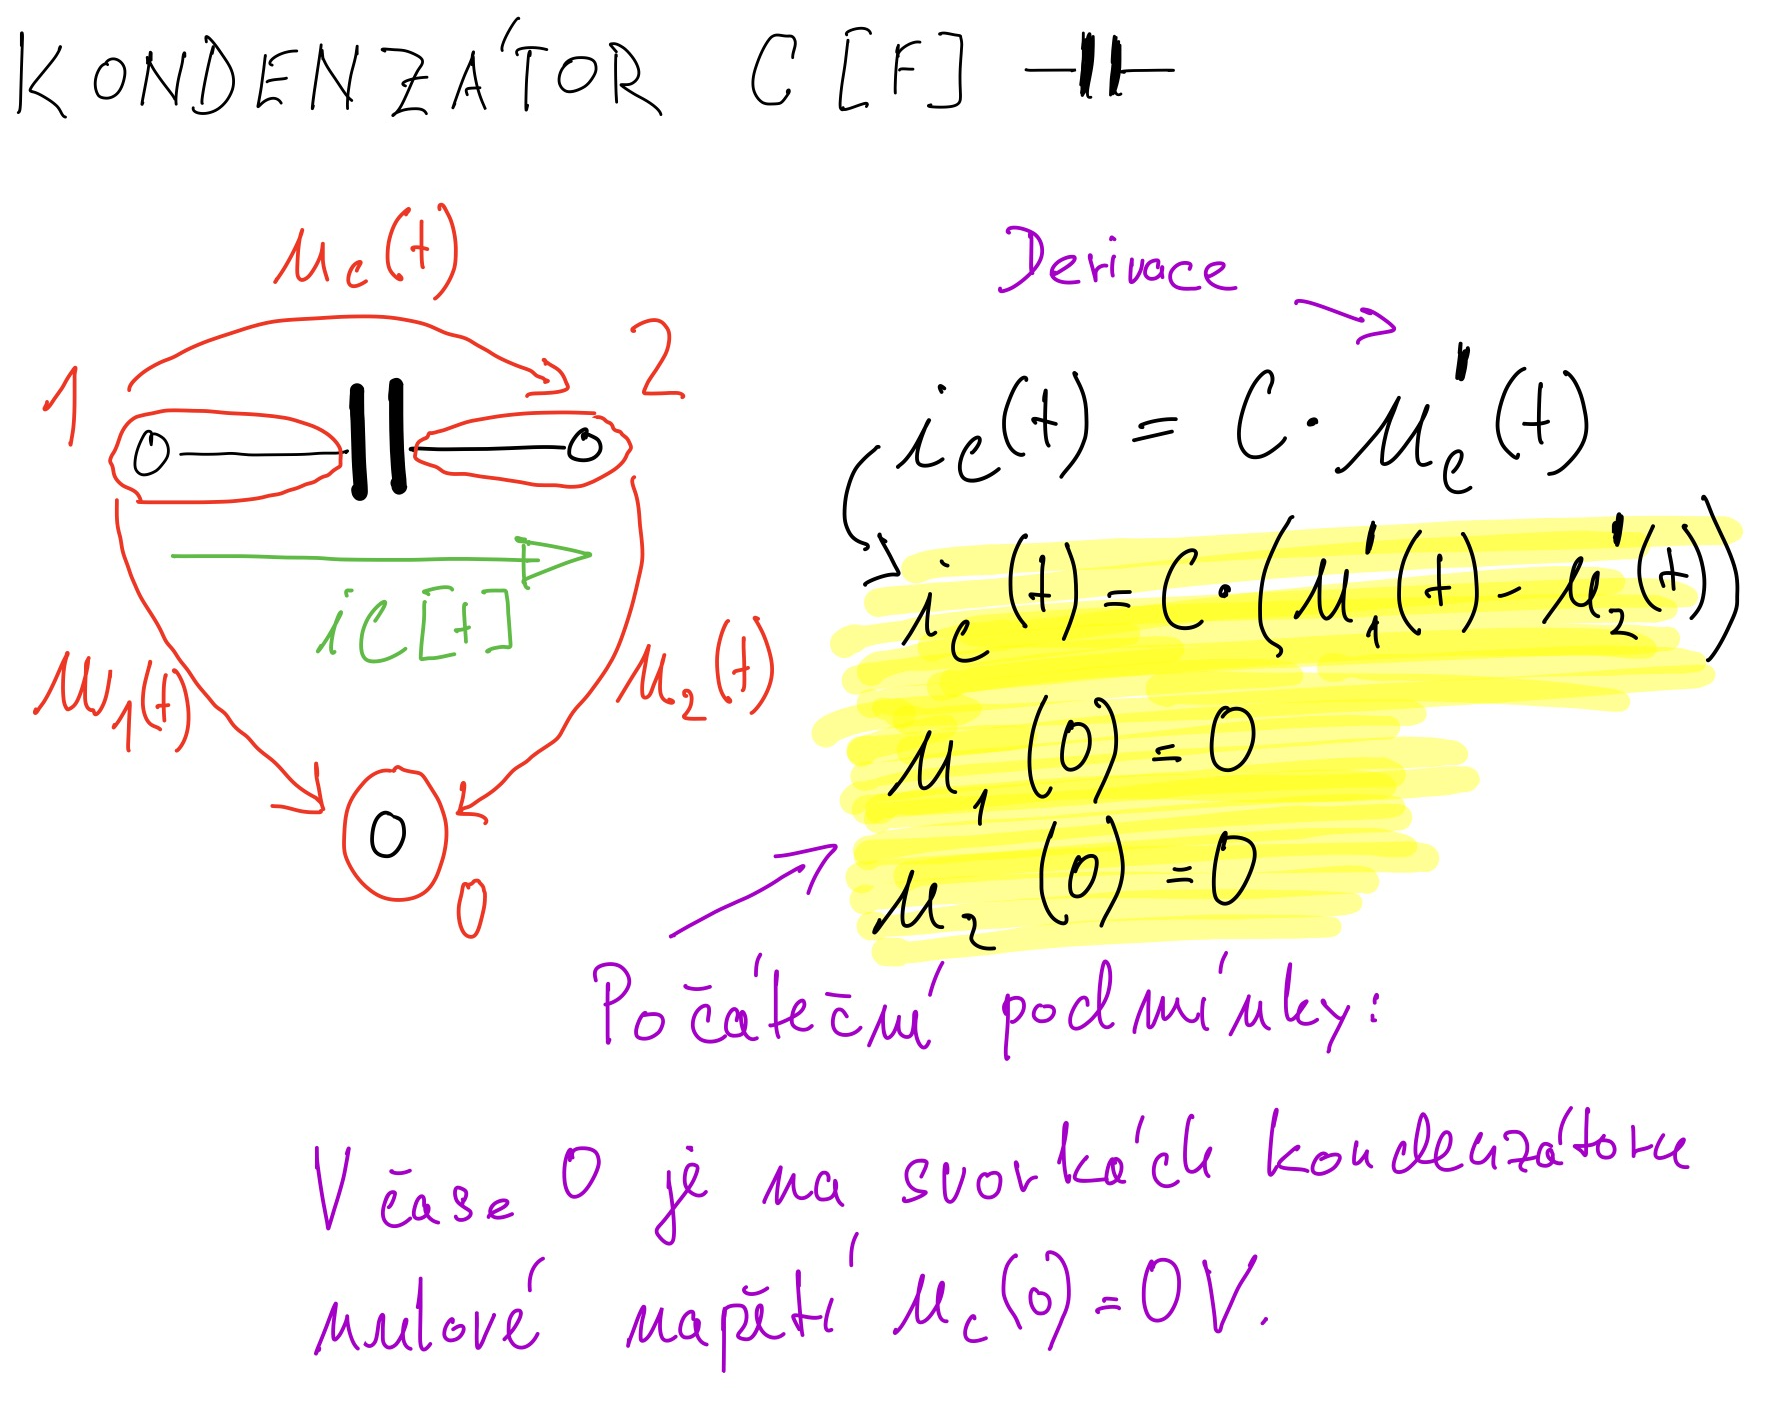 KONDENZÁTOR C [F]
uc(t)
1
2
iC[t]
u1(t)
u2(t)
0
Derivace
ic(t) = C · uc'(t)
ic(t) = C · (u1'(t) - u2'(t))
u1(0) = 0
u2(0) = 0
Počáteční podmínky:
V čase 0 je na svorkách kondenzátoru
nulové napětí uc(0) = 0 V.